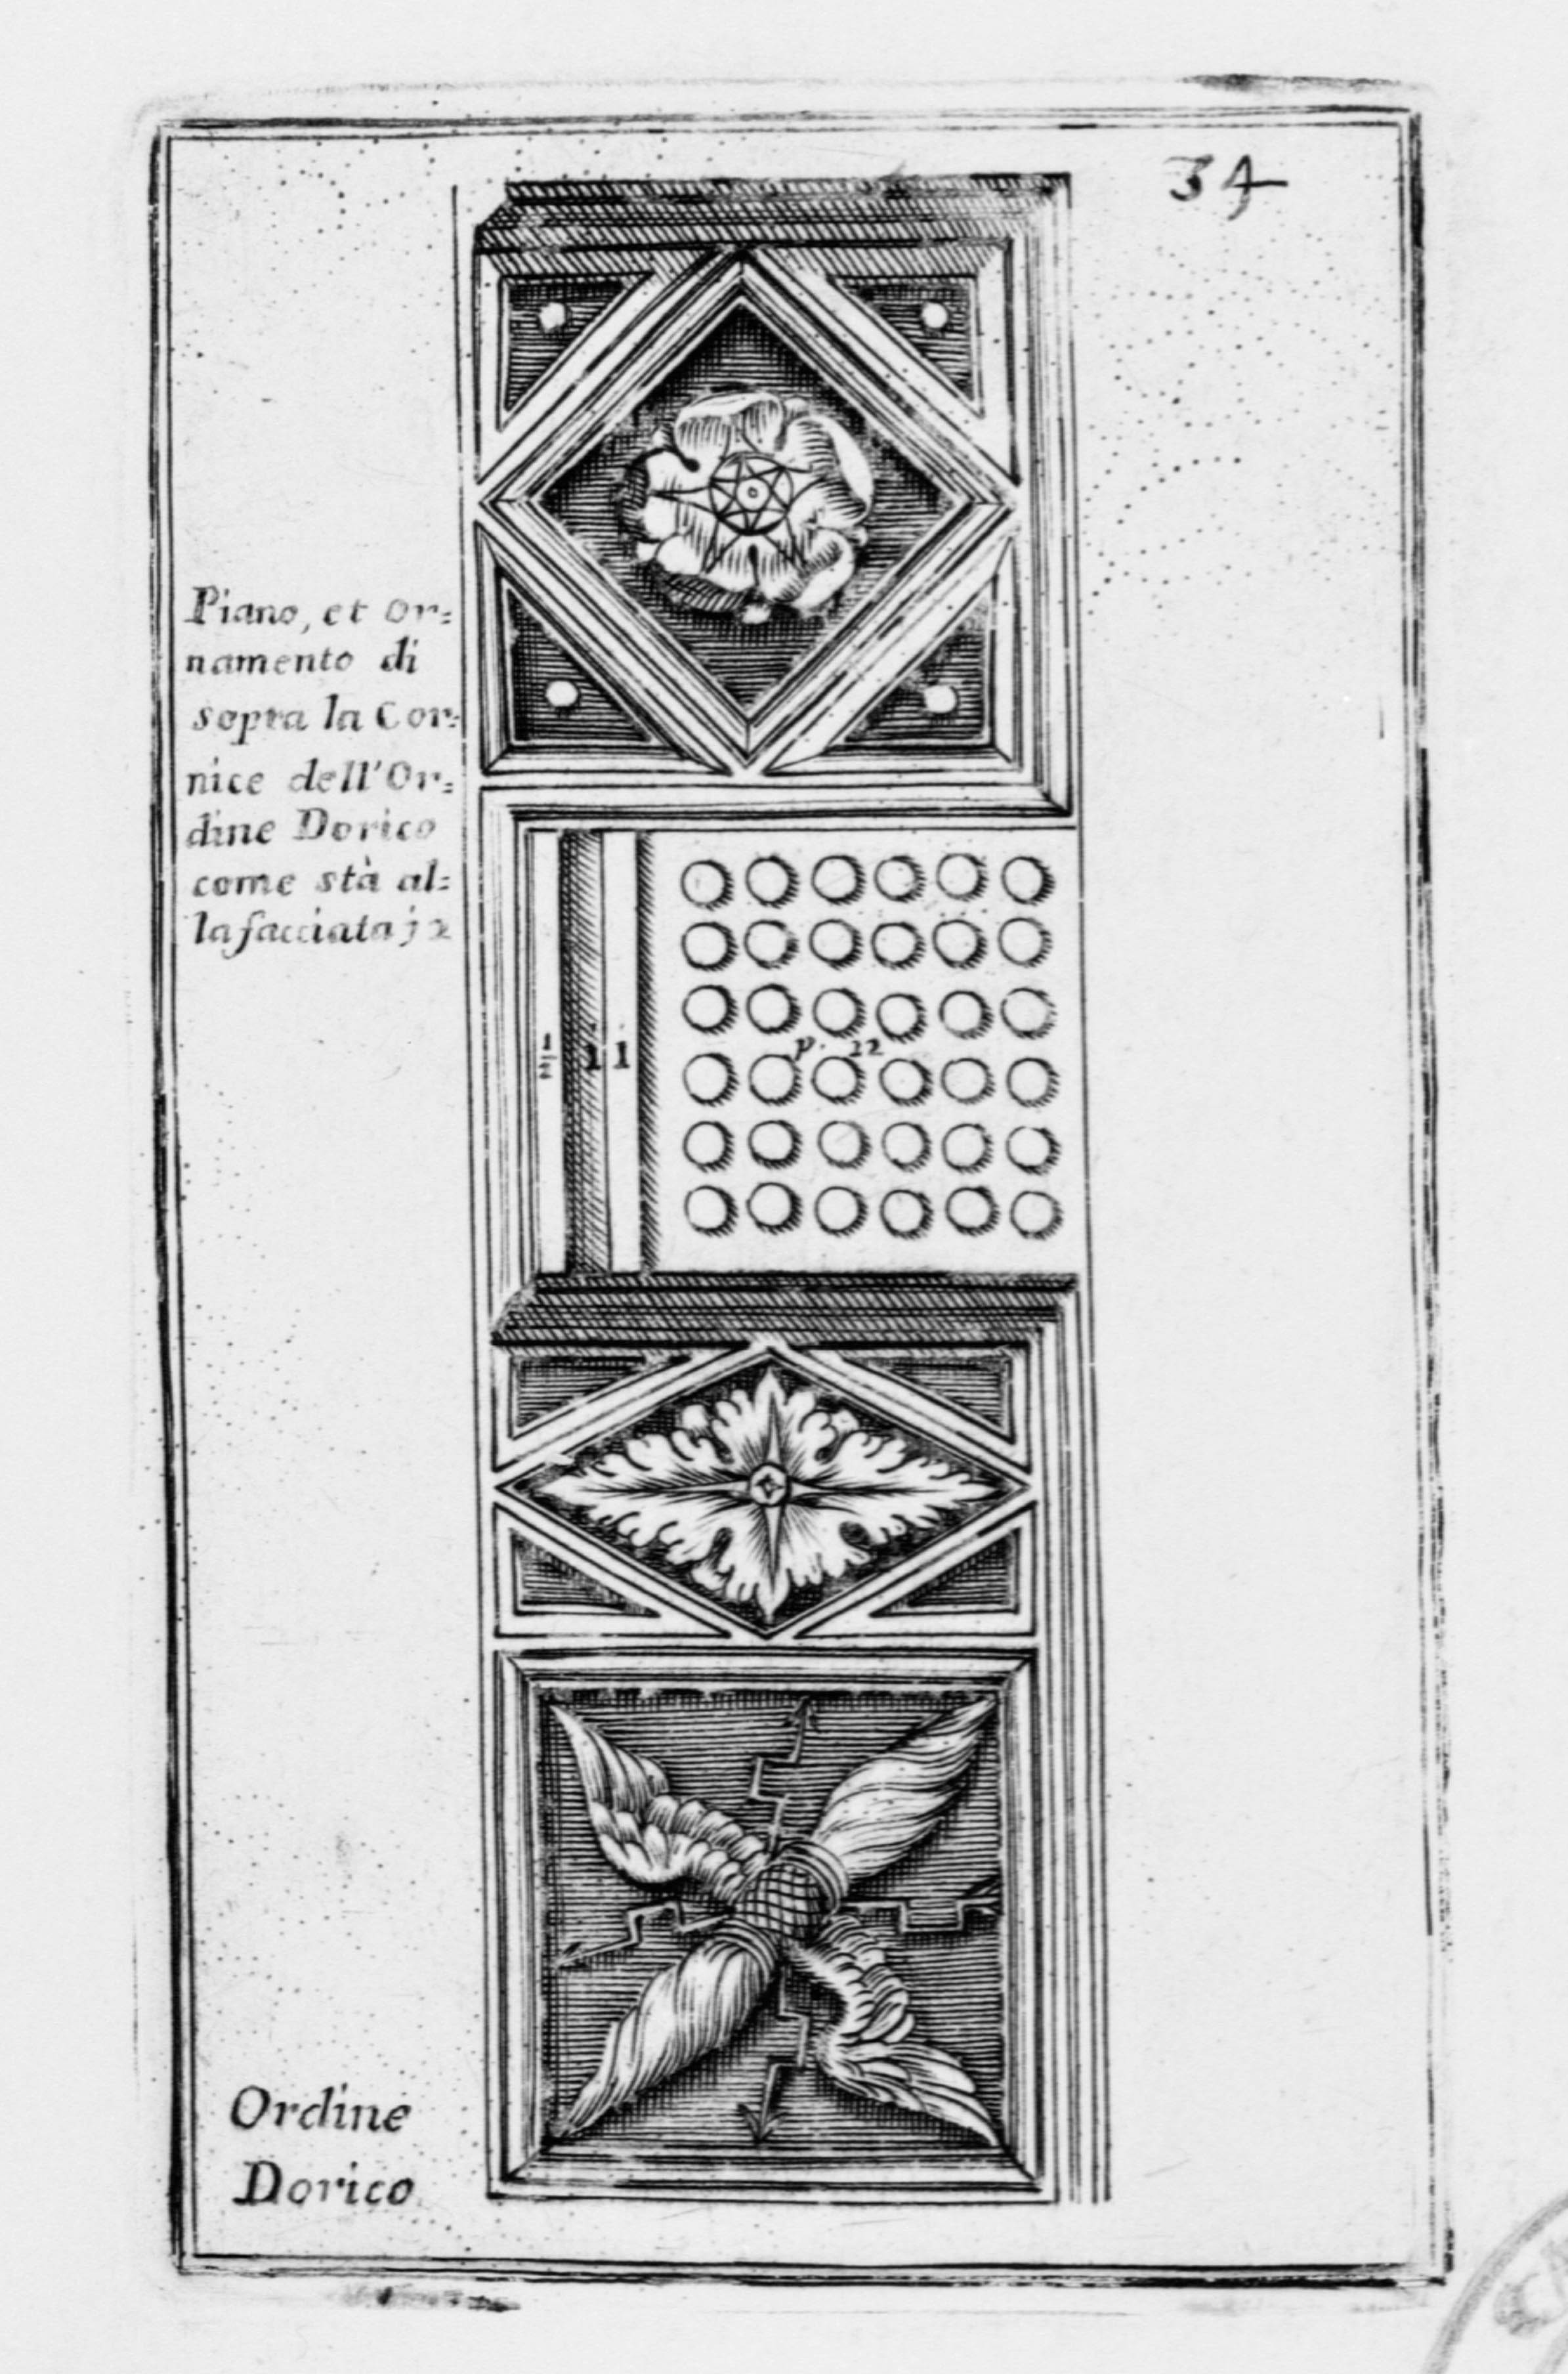 34
Piano, et Or=
namento di
sopra la Cor=
nice dell'Or=
dine Dorico
come stà al=
la facciata 32
½ 1 1
p. 22
Ordine
Dorico